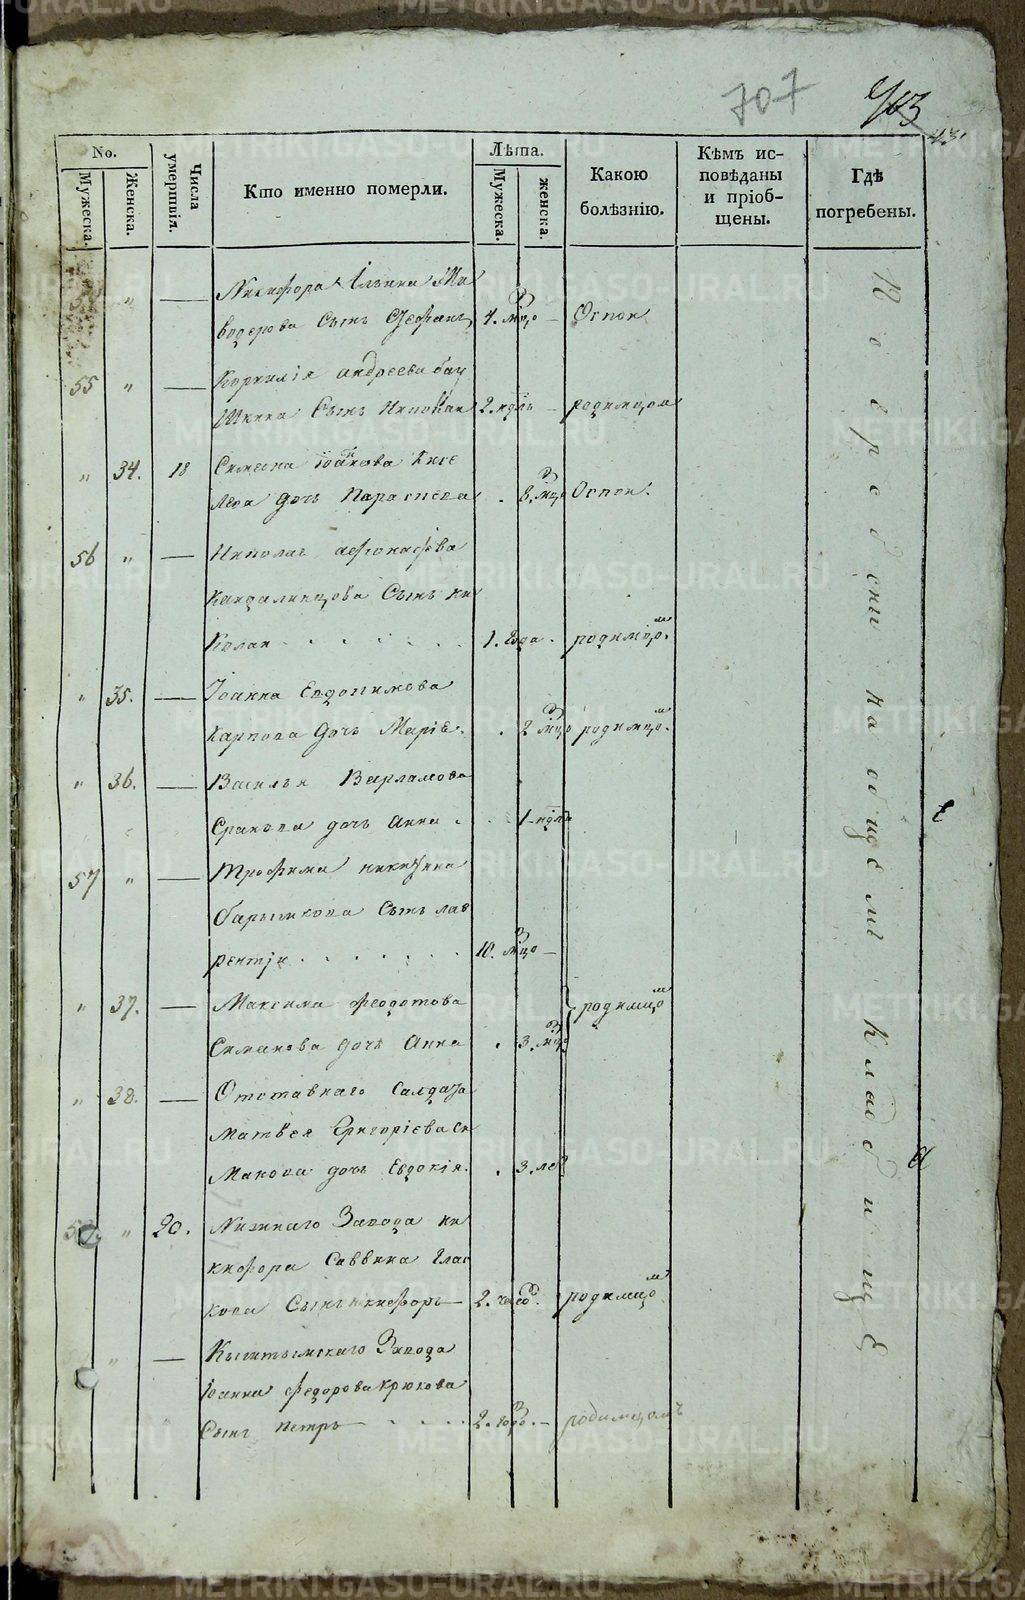 707
703
No.
Мужеска.
Женска.
Числа умертвія.
Кто именно померли.
Лѣта.
Мужеска.
женска.
Какою болѣзнію.
Кѣмъ исповѣданы и пріобщены.
Гдѣ погребены.
" — Никифора Ильина
сынъ Стефанъ 4. мцо — Оспои
55 " — Корнилія андреева бау
шкина Сынъ 2. ндль — родимцом
" 34. 18 Симеона Іоакова Кисе
лева дочь Параскева . 8. мцо Оспои.
56 " — Николая афонасьева
Кандалинцова Сынъ ни
колаи . . . . . . 1. года . родимцом.
" 35. — Іоанна Евдокимова
карпова дочь Марія . . 2 мцо родимцо.
" 36. — Василья Варламова
дочь анна . . . 1. ндля
57 " — Трофима никитина
барышкова Сынъ лав
рентіи . . . . . . 10. мцо —
" 37. — Максима феодотова
Симанова дочь Анна . 3. мцо родимцо
" 38. — Отставнаго Салдата
Матвея Григоріева си
манова дочь Евдокія . . 3. лет
58 " 20. Нижнаго Завода ни
кифора Саввина глас
кова Сынъ никифоръ — 2. часо. родимцо
" — Кыштымскаго Завода
Іоанна федорова крюкова
Сынъ петръ — . . . . 2. годо. — родимцомъ
Погребены на общемъ кладбище